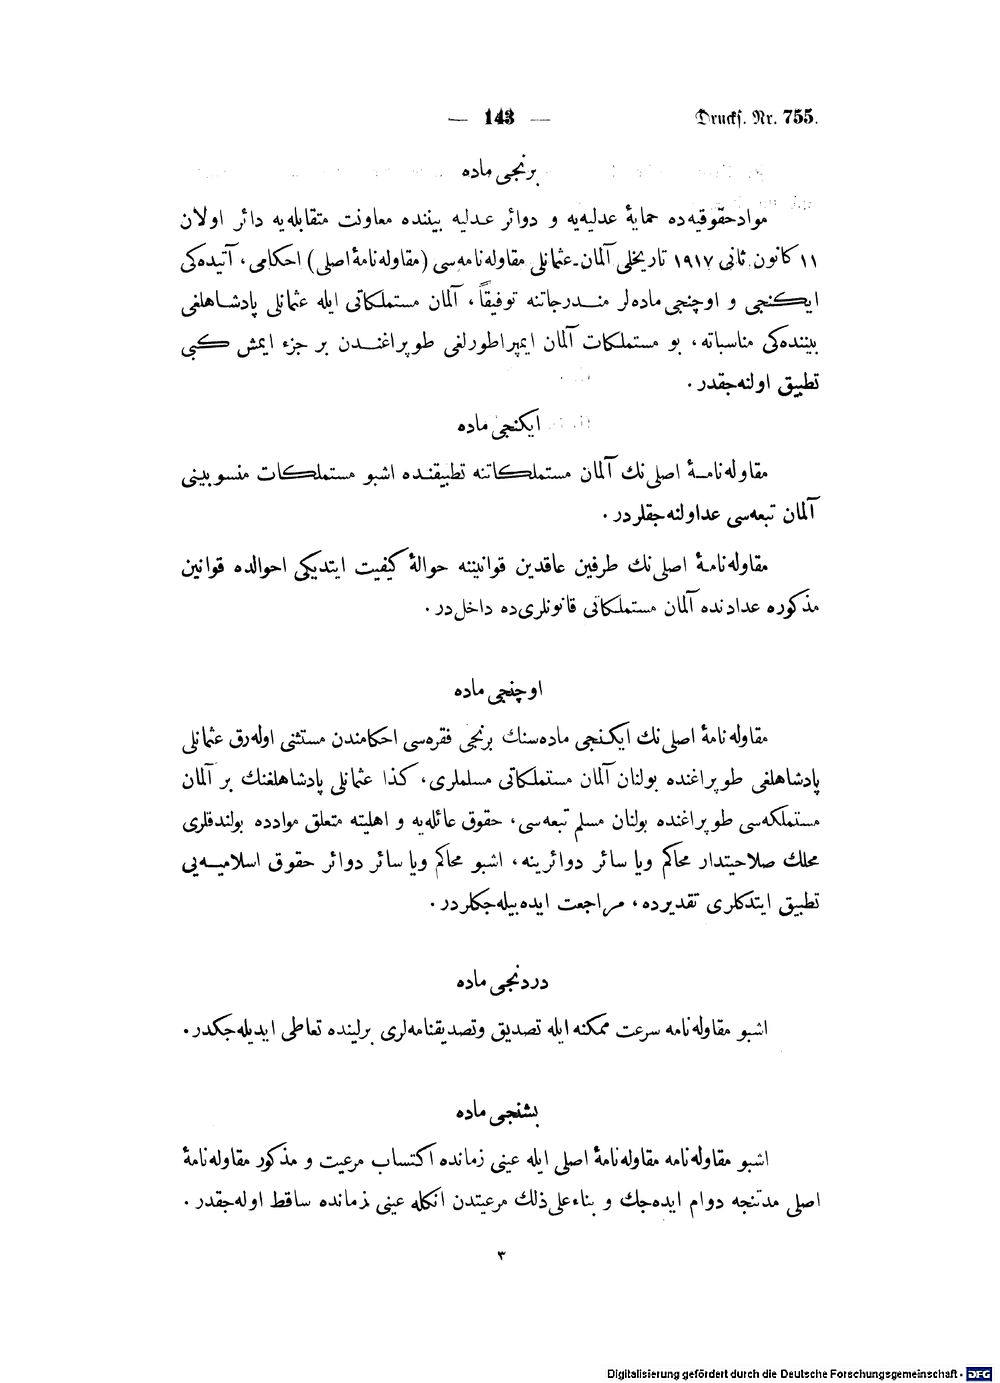 — 143 —
Drucks. Nr. 755.
برنجی ماده
مواد حقوقیه‌ده حمایهٔ عدلیه‌یه و دوائر عدلیه بیننده معاونت متقابله‌یه دائر اولان
١١ كانون ثانی ١٩١٧ تاریخلی آلمان ـ عثمانلی مقاوله‌نامه‌سی (مقاوله‌نامهٔ اصلی) احكامی، آتیده‌كی
ایكنجی و اوچنجی ماده‌لر مندرجاتنه توفیقاً، آلمان مستملكاتی ایله عثمانلی پادشاهلغی
بیننده‌كی مناسباته، بو مستملكات آلمان ایمپراطورلغی طوپراغندن بر جزء ایمش كبی
تطبیق اولنه‌جقدر.
ایكنجی ماده
مقاوله‌نامهٔ اصلی‌نك آلمان مستملكاتنه تطبیقنده اشبو مستملكات منسوبینی
آلمان تبعه‌سی عداولنه‌جقلردر.
مقاوله‌نامهٔ اصلی‌نك طرفین عاقدین قوانیننه حوالهٔ كیفیت ایتدیكی احوالده قوانین
مذكوره عدادنده آلمان مستملكاتی قانونلری‌ده داخل‌در.
اوچنجی ماده
مقاوله‌نامهٔ اصلی‌نك ایكنجی ماده‌سنك برنجی فقره‌سی احكامندن مستثنی اوله‌رق عثمانلی
پادشاهلغی طوپراغنده بولنان آلمان مستملكاتی مسلملری، كذا عثمانلی پادشاهلغنك بر آلمان
مستملكه‌سی طوپراغنده بولنان مسلم تبعه‌سی، حقوق عائله‌یه و اهلیته متعلق موادده بولندقلری
محلك صلاحیتدار محاكم ویا سائر دوائرینه، اشبو محاكم ویا سائر دوائر حقوق اسلامیه‌یی
تطبیق ایتدكلری تقدیرده، مراجعت ایده‌بیله‌جكلردر.
دردنجی ماده
اشبو مقاوله‌نامه سرعت ممكنه ایله تصدیق وتصدیقنامه‌لری برلینده تعاطی ایدیله‌جكدر.
بشنجی ماده
اشبو مقاوله‌نامه مقاوله‌نامهٔ اصلی ایله عینی زمانده اكتساب مرعیت و مذكور مقاوله‌نامهٔ
اصلی مدتنجه دوام ایده‌جك و بناءعلی‌ذلك مرعیتدن انكله عینی زمانده ساقط اوله‌جقدر.
٣
Digitalisierung gefördert durch die Deutsche Forschungsgemeinschaft - DFG